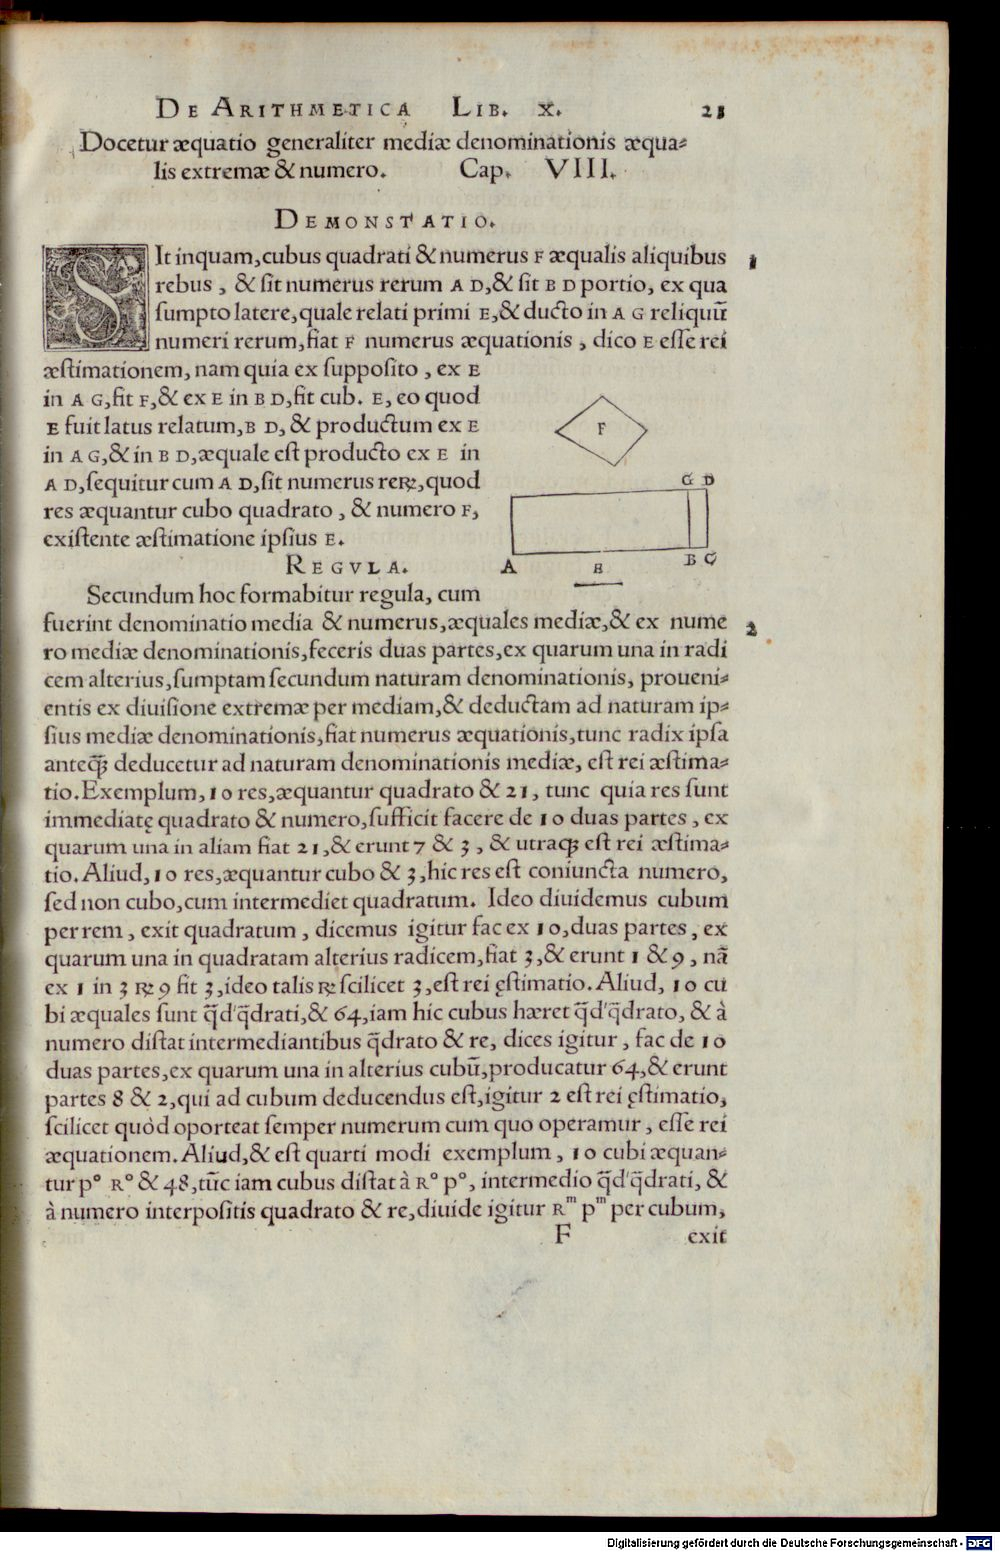 DE ARITHMETICA LIB. X. 21
Docetur æquatio generaliter mediæ denominationis æqua-
lis extremæ & numero. Cap. VIII.
DEMONSTATIO.
SIt inquam, cubus quadrati & numerus F æqualis aliquibus 1
rebus, & sit numerus rerum A D, & sit B D portio, ex qua
sumpto latere, quale relati primi E, & ducto in A G reliquũ
numeri rerum, fiat F numerus æquationis, dico E esse rei
æstimationem, nam quia ex supposito, ex E
in A G, fit F, & ex E in B D, fit cub. E, eo quod
E fuit latus relatum, B D, & productum ex E
in A G, & in B D, æquale est producto ex E in
A D, sequitur cum A D, sit numerus reꝝ, quod
res æquantur cubo quadrato, & numero F,
existente æstimatione ipsius E.
F
G D
A E B C
REGVLA.
Secundum hoc formabitur regula, cum
fuerint denominatio media & numerus, æquales mediæ, & ex nume 2
ro mediæ denominationis, feceris duas partes, ex quarum una in radi
cem alterius, sumptam secundum naturam denominationis, proueni-
entis ex diuisione extremæ per mediam, & deductam ad naturam ip-
sius mediæ denominationis, fiat numerus æquationis, tunc radix ipsa
anteq̃ꝫ deducetur ad naturam denominationis mediæ, est rei æstima-
tio. Exemplum, 10 res, æquantur quadrato & 21, tunc quia res sunt
immediatę quadrato & numero, sufficit facere de 10 duas partes, ex
quarum una in aliam fiat 21, & erunt 7 & 3, & utraqꝫ est rei æstima-
tio. Aliud, 10 res, æquantur cubo & 3, hic res est coniuncta numero,
sed non cubo, cum intermediet quadratum. Ideo diuidemus cubum
per rem, exit quadratum, dicemus igitur fac ex 10, duas partes, ex
quarum una in quadratam alterius radicem, fiat 3, & erunt 1 & 9, nã
ex 1 in 3 ℞ 9 fit 3, ideo talis ℞ scilicet 3, est rei ęstimatio. Aliud, 10 cu
bi æquales sunt q̃d'q̃drati, & 64, iam hic cubus hæret q̃d'q̃drato, & à
numero distat intermediantibus q̃drato & re, dices igitur, fac de 10
duas partes, ex quarum una in alterius cubũ, producatur 64, & erunt
partes 8 & 2, qui ad cubum deducendus est, igitur 2 est rei ęstimatio,
scilicet quòd oporteat semper numerum cum quo operamur, esse rei
æquationem. Aliud, & est quarti modi exemplum, 10 cubi æquan-
tur pº Rº & 48, tũc iam cubus distat à Rº pº, intermedio q̃d'q̃drati, &
à numero interpositis quadrato & re, diuide igitur Rᵐ pᵐ per cubum,
F exit
Digitalisierung gefördert durch die Deutsche Forschungsgemeinschaft - DFG